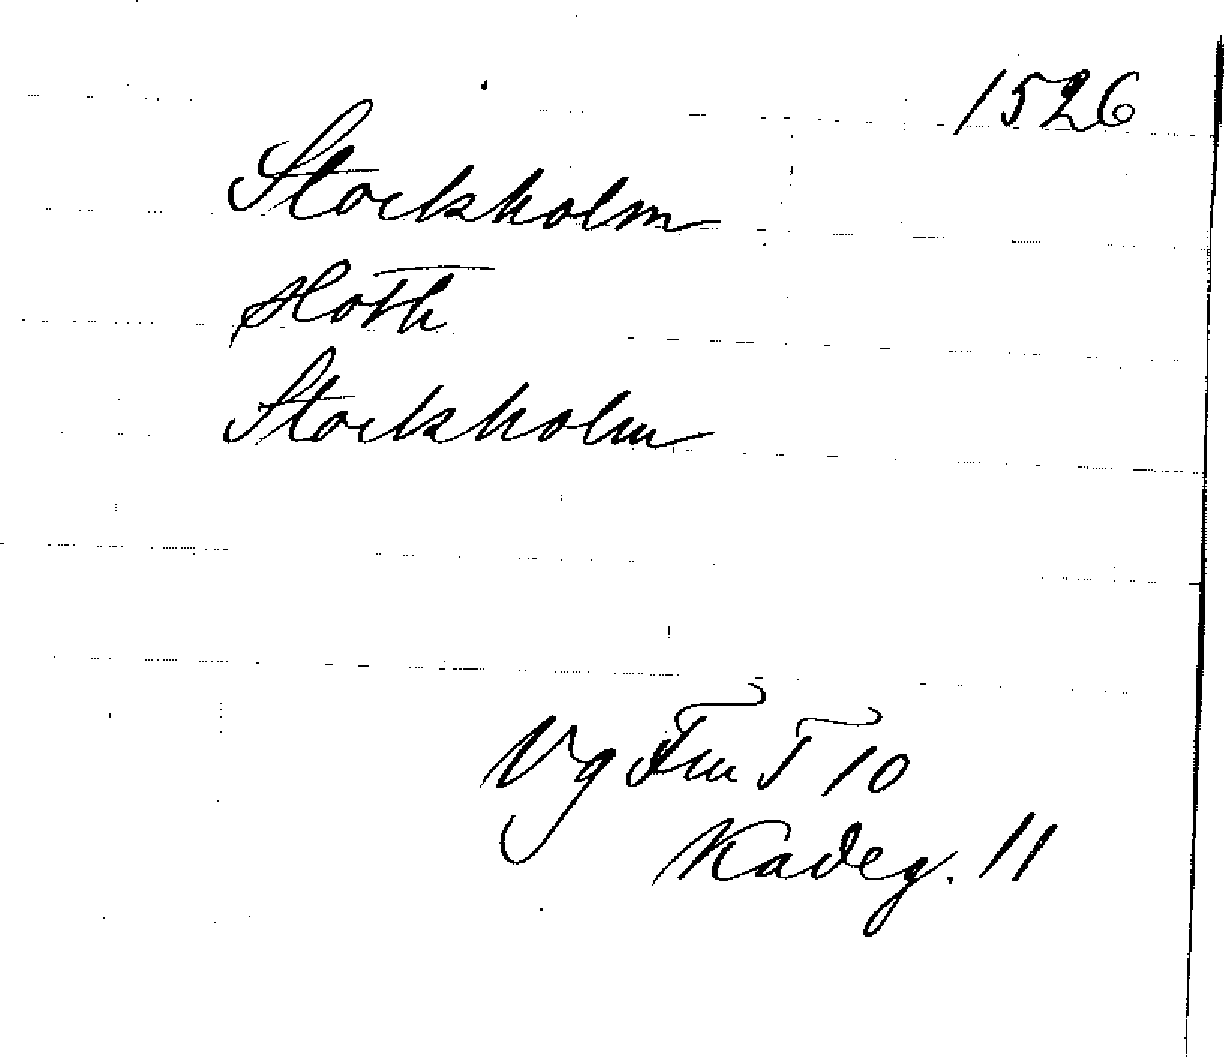 1526
Stockholm
Hoth
Stockholm
Vg Fm T 10
Kadeg. 11